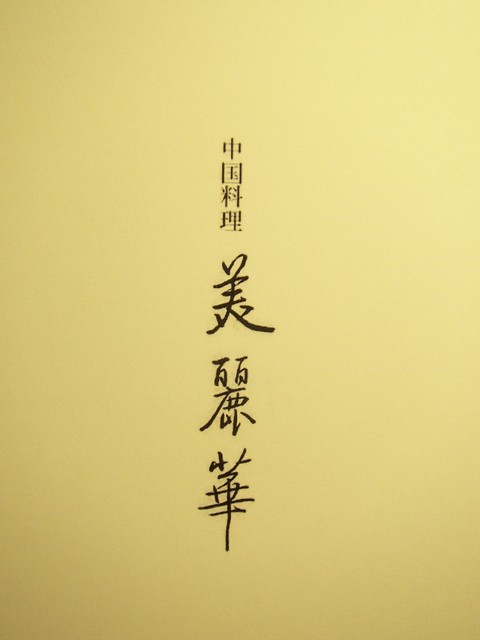 中国料理
美麗華